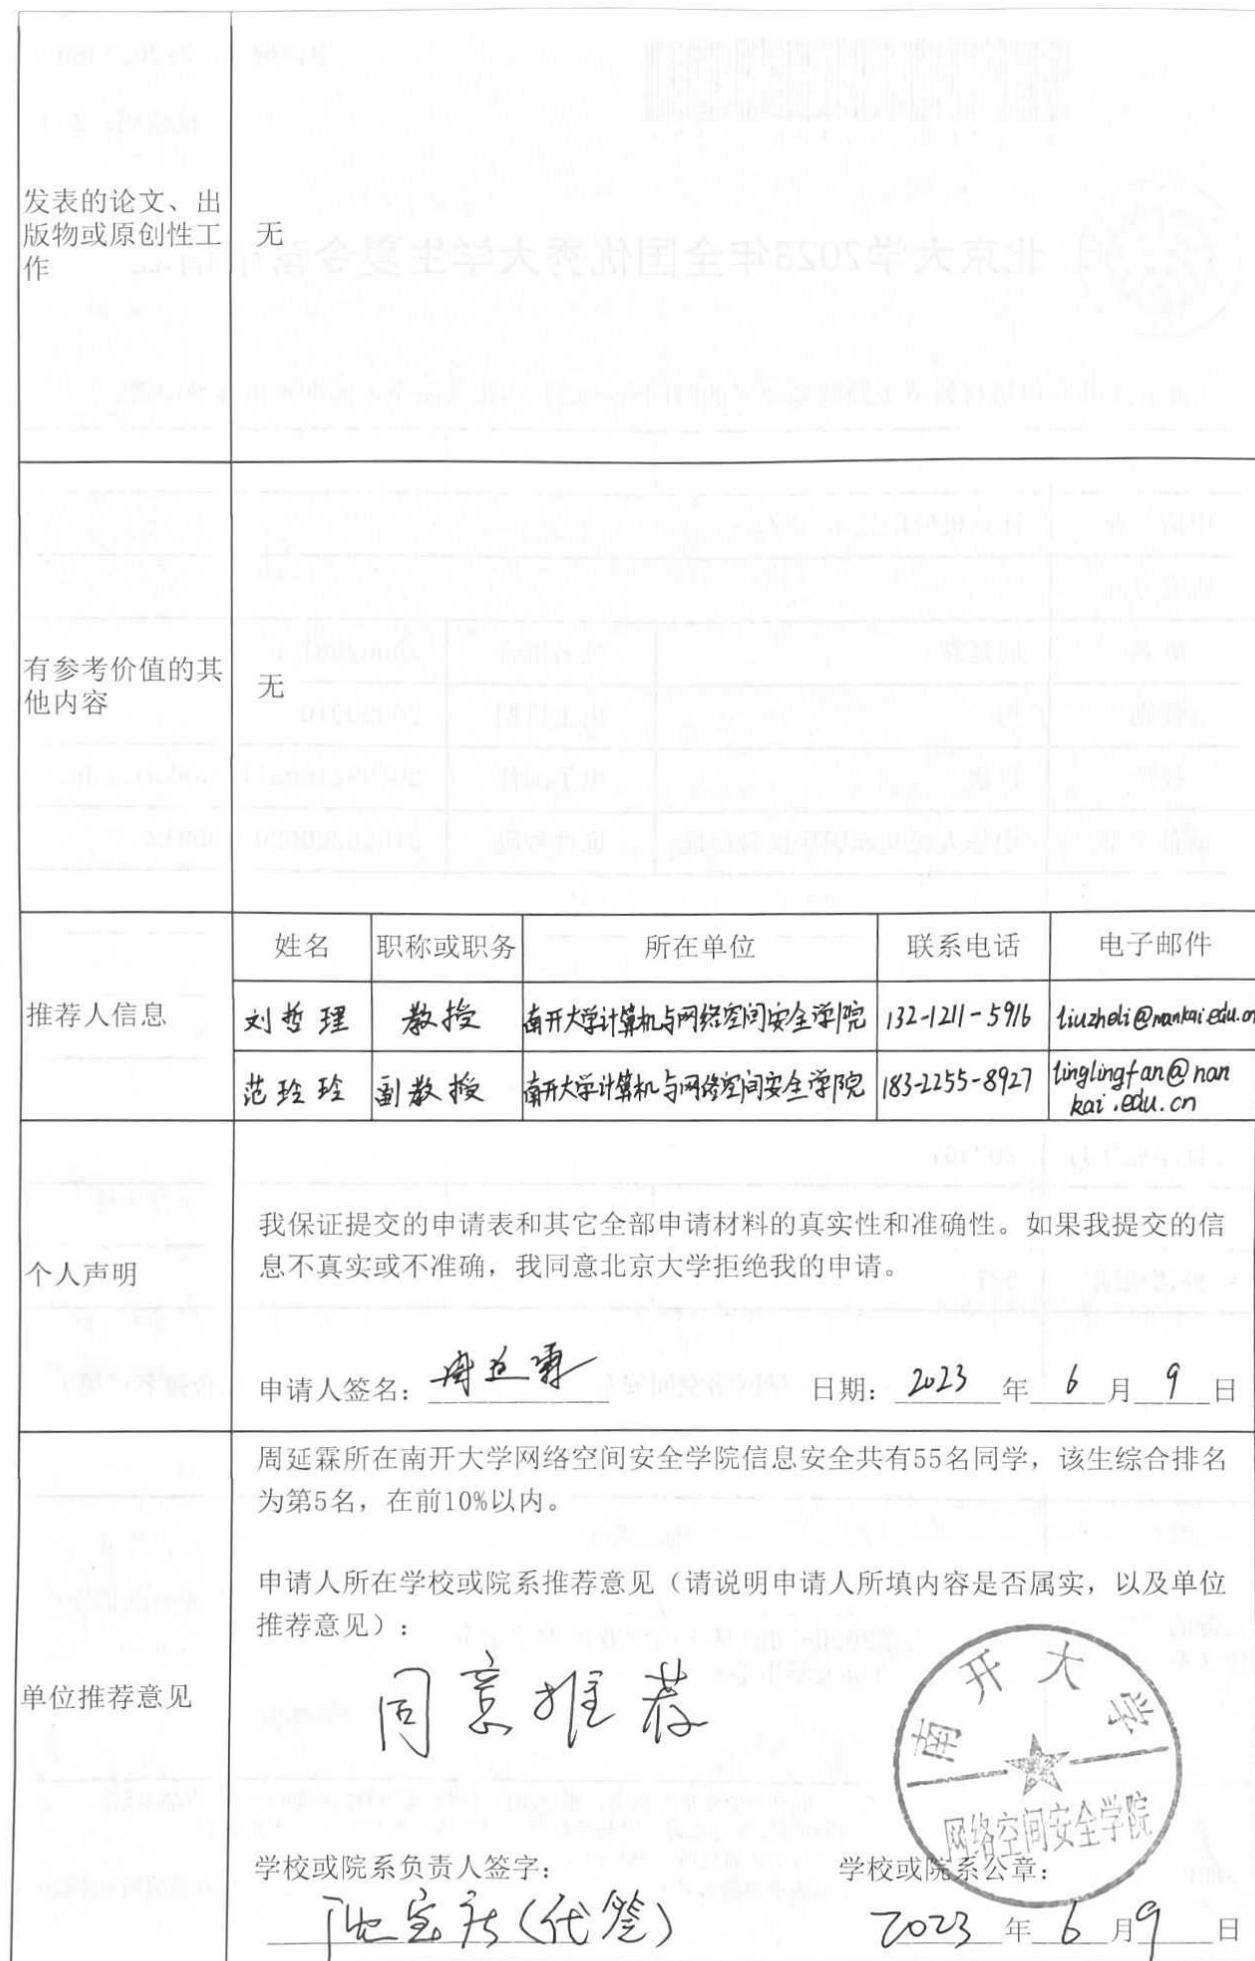 发表的论文、出
版物或原创性工
作
无
有参考价值的其
他内容
无
推荐人信息
姓名 职称或职务 所在单位 联系电话 电子邮件
刘哲理 教授 南开大学计算机与网络空间安全学院 132-1211-5916 liuzheli@nankai.edu.cn
范玲玲 副教授 南开大学计算机与网络空间安全学院 183-2255-8927 linglingfan@nan
kai.edu.cn
个人声明
我保证提交的申请表和其它全部申请材料的真实性和准确性。如果我提交的信
息不真实或不准确，我同意北京大学拒绝我的申请。
申请人签名：周延霖 日期：2023年6月9日
单位推荐意见
周延霖所在南开大学网络空间安全学院信息安全共有55名同学，该生综合排名
为第5名，在前10%以内。
申请人所在学校或院系推荐意见（请说明申请人所填内容是否属实，以及单位
推荐意见）：
同意推荐
南开大学
网络空间安全学院
学校或院系负责人签字： 学校或院系公章：
(代签) 2023年6月9日